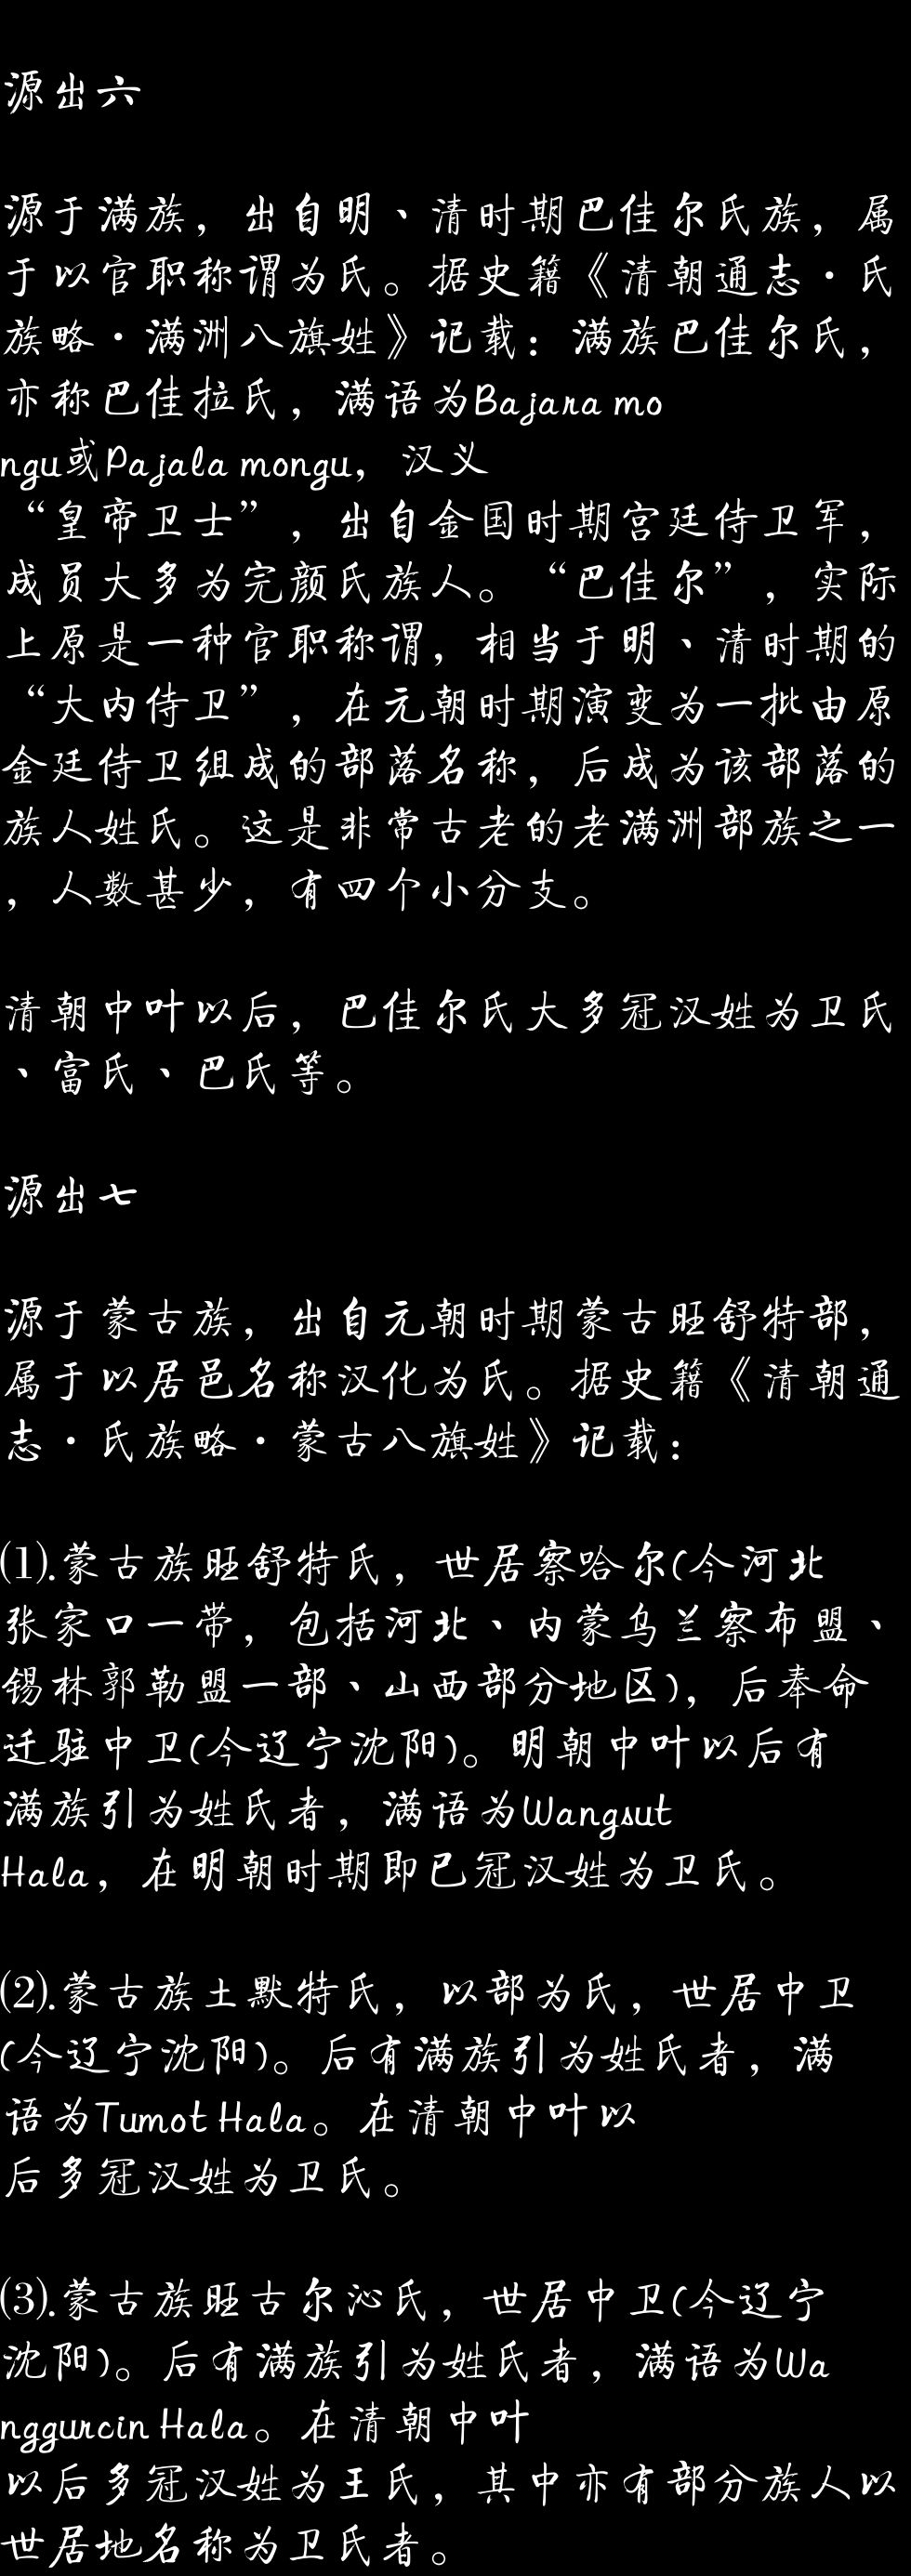 源出六
源于满族，出自明、清时期巴佳尔氏族，属
于以官职称谓为氏。据史籍《清朝通志·氏
族略·满洲八旗姓》记载：满族巴佳尔氏，
亦称巴佳拉氏，满语为Bajara mo
ngu或Pajala mongu，汉义
“皇帝卫士”，出自金国时期宫廷侍卫军，
成员大多为完颜氏族人。“巴佳尔”，实际
上原是一种官职称谓，相当于明、清时期的
“大内侍卫”，在元朝时期演变为一批由原
金廷侍卫组成的部落名称，后成为该部落的
族人姓氏。这是非常古老的老满洲部族之一
，人数甚少，有四个小分支。
清朝中叶以后，巴佳尔氏大多冠汉姓为卫氏
、富氏、巴氏等。
源出七
源于蒙古族，出自元朝时期蒙古旺舒特部，
属于以居邑名称汉化为氏。据史籍《清朝通
志·氏族略·蒙古八旗姓》记载：
⑴.蒙古族旺舒特氏，世居察哈尔(今河北
张家口一带，包括河北、内蒙乌兰察布盟、
锡林郭勒盟一部、山西部分地区)，后奉命
迁驻中卫(今辽宁沈阳)。明朝中叶以后有
满族引为姓氏者，满语为Wangsut
Hala，在明朝时期即已冠汉姓为卫氏。
⑵.蒙古族土默特氏，以部为氏，世居中卫
(今辽宁沈阳)。后有满族引为姓氏者，满
语为Tumot Hala。在清朝中叶以
后多冠汉姓为卫氏。
⑶.蒙古族旺古尔沁氏，世居中卫(今辽宁
沈阳)。后有满族引为姓氏者，满语为Wa
nggurcin Hala。在清朝中叶
以后多冠汉姓为王氏，其中亦有部分族人以
世居地名称为卫氏者。